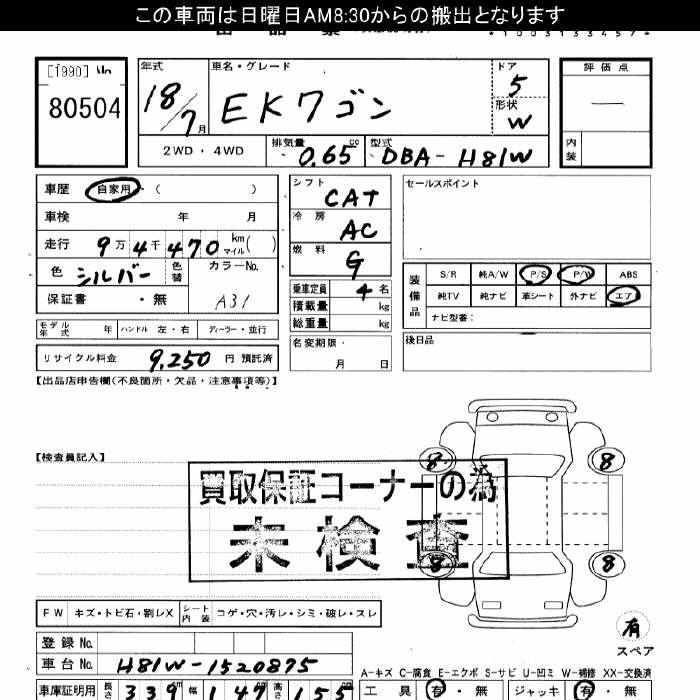 この車両は日曜日AM8:30からの搬出となります
*1003133457*
[1990]
80504
年式 車名・グレード ドア 評価点
18/7月 EKワゴン 5
形状 W
2WD・4WD 排気量 0.65 cc 型式 DBA-H81W 内装
車歴 自家用 ( )
シフト CAT
セールスポイント
車検 年 月
冷房 AC
走行 9万4千470 km マイル( )
燃料 G
色 シルバー 色替 カラーNo. A31
保証書 ・無
乗車定員 4名
積載量 kg
総重量 kg
装備品 S/R 純A/W P/S P/W ABS
純TV 純ナビ 革シート 外ナビ エア
ナビ型番:
モデル年式 年 ハンドル 左・右 ディーラー・並行
名変期限・ 月 日
後日品
リサイクル料金 9,250 円 預託済
【出品店申告欄(不良箇所・欠品・注意事項等)】
【検査員記入】
買取保証コーナーの為
未検査
8 8
8 8
有
スペア
FW キズ・トビ石・割レX シート内装 コゲ・穴・汚レ・シミ・破レ・スレ
登録No.
車台No. H81W-1520875
A-キズ C-腐食 E-エクボ S-サビ U-凹ミ W-補修 XX-交換済
車庫証明用 長さ 339 幅 147 高さ 155
工具 有・無 ジャッキ 有・無